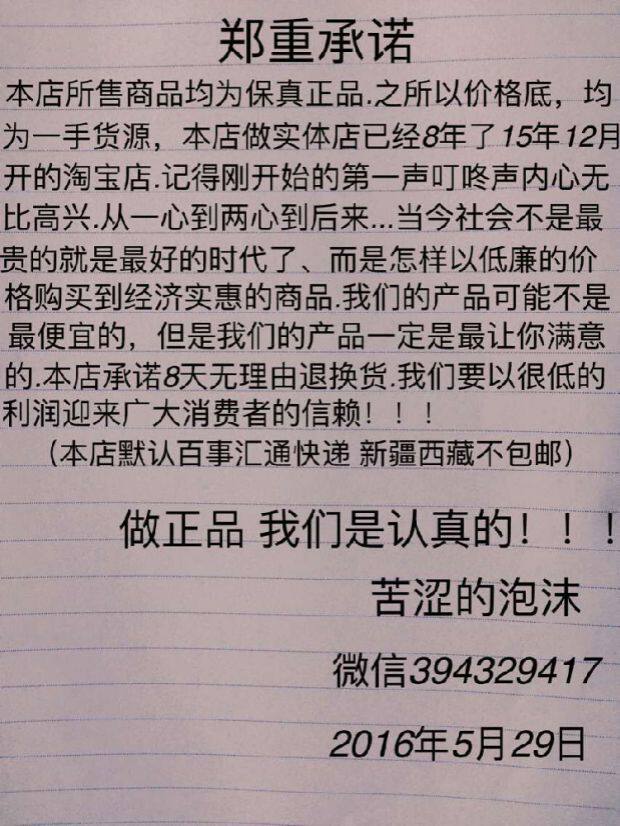 郑重承诺
本店所售商品均为保真正品.之所以价格底，均
为一手货源，本店做实体店已经8年了15年12月
开的淘宝店.记得刚开始的第一声叮咚声内心无
比高兴.从一心到两心到后来...当今社会不是最
贵的就是最好的时代了、而是怎样以低廉的价
格购买到经济实惠的商品.我们的产品可能不是
最便宜的，但是我们的产品一定是最让你满意
的.本店承诺8天无理由退换货.我们要以很低的
利润迎来广大消费者的信赖！！！
（本店默认百事汇通快递 新疆西藏不包邮）
做正品 我们是认真的！！！
苦涩的泡沫
微信394329417
2016年5月29日